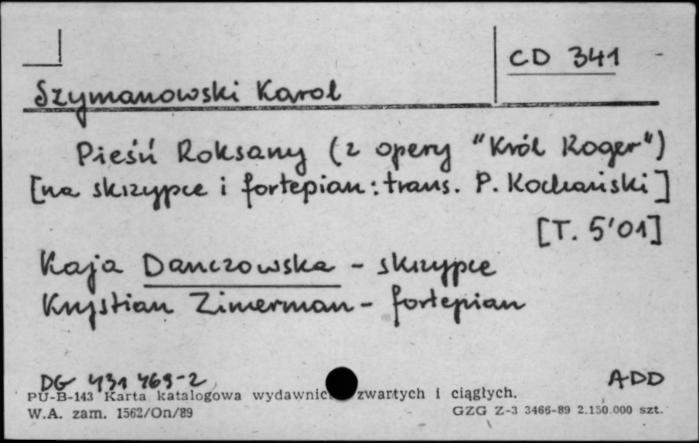 CD 341
Szymanowski Karol
Pieśń Roksany (z opery "Król Roger")
[na skrzypce i fortepian: trans. P. Kochański]
[T. 5'01]
Kaja Danczowska - skrzypce
Krystian Zimerman - fortepian
DG 431 469-2 ADD
PU-B-143 Karta katalogowa wydawnic zwartych i ciągłych.
W.A. zam. 1562/On/89 GZG Z-3 3466-89 2.150.000 szt.